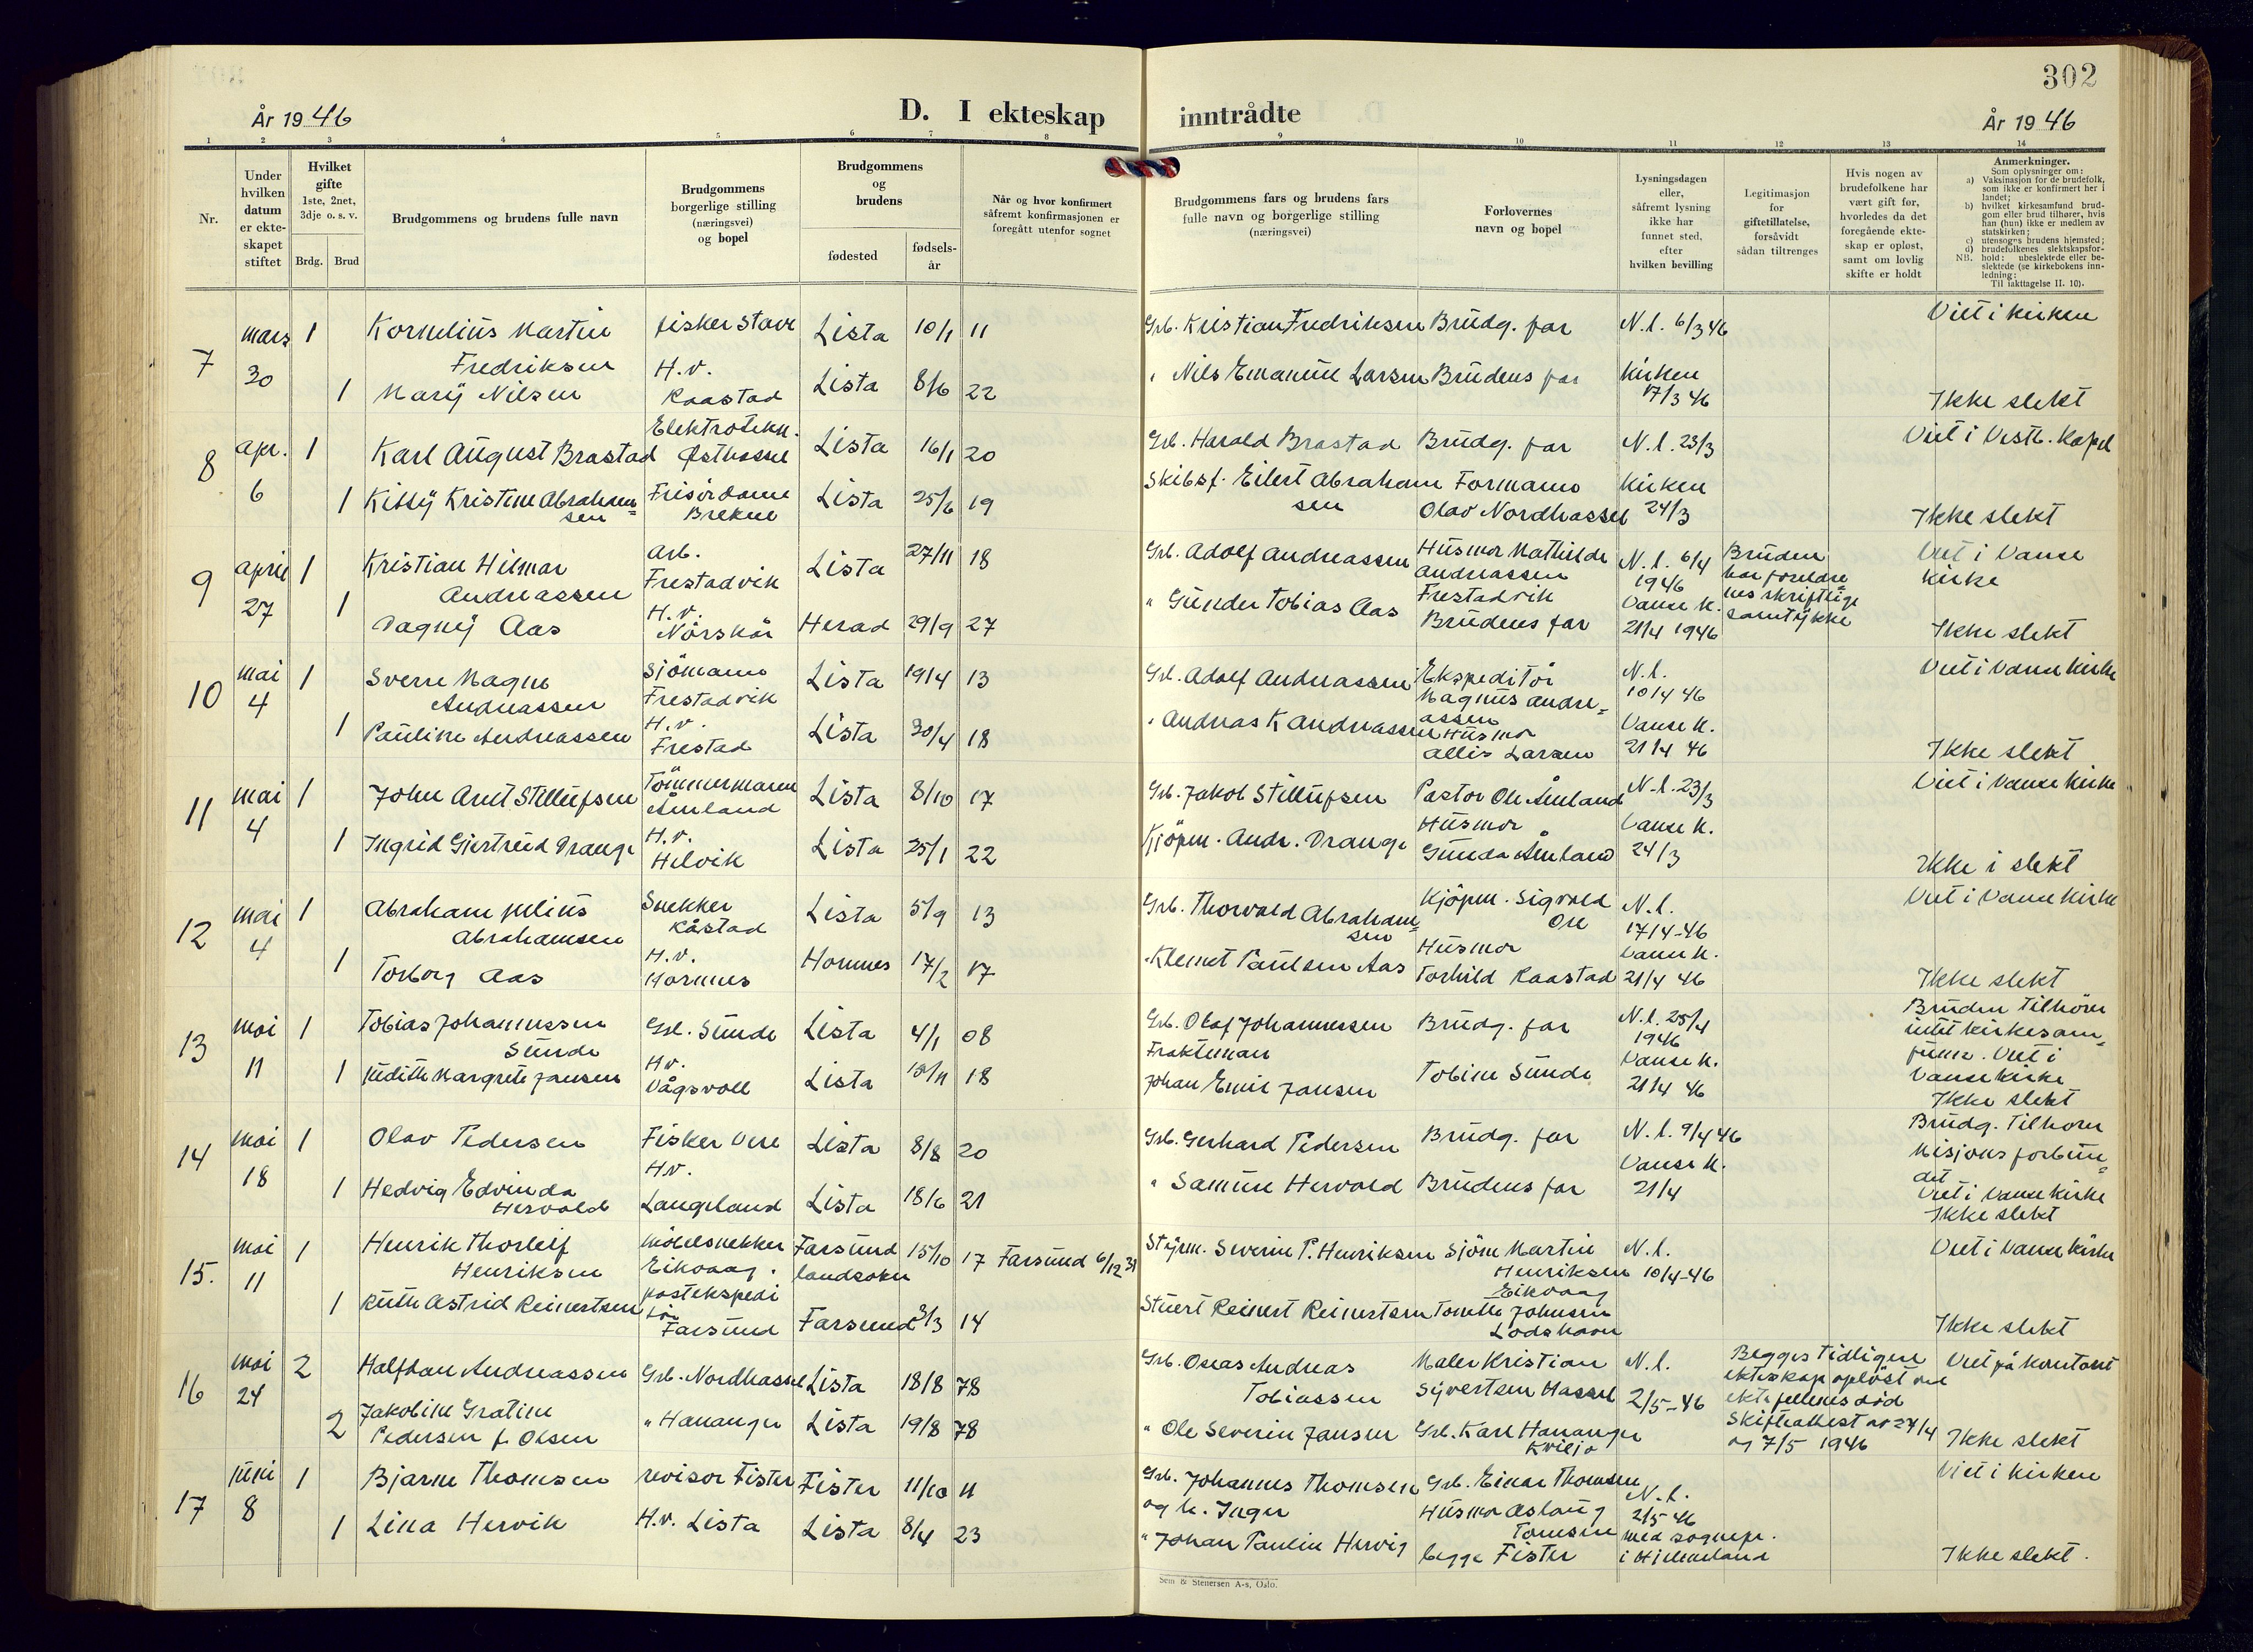 302
År 1946
D. I ekteskap
inntrådte
År 1946
1 2 3 4 5 6 7 8 9 10 11 12 13 14
Nr.
Under
hvilken
datum
er ekte-
skapet
stiftet
Hvilket
gifte
1ste, 2net,
3dje o. s. v.
Brdg. Brud
Brudgommens og brudens fulle navn
Brudgommens
borgerlige stilling
(næringsvei)
og bopel
Brudgommens
og
brudens
fødested
fødsels-
år
Når og hvor konfirmert
såfremt konfirmasjonen er
foregått utenfor sognet
Brudgommens fars og brudens fars
fulle navn og borgerlige stilling
(næringsvei)
Forlovernes
navn og bopel
Lysningsdagen
eller,
såfremt lysning
ikke har
funnet sted,
efter
hvilken bevilling
Legitimasjon
for
giftetillatelse,
forsåvidt
sådan tiltrenges
Hvis nogen av
brudefolkene har
vært gift før,
hvorledes da det
foregående ekte-
skap er opløst,
samt om lovlig
skifte er holdt
Anmerkninger.
Som oplysninger om:
a) Vaksinasjon for de brudefolk,
som ikke er konfirmert her i
landet;
b) hvilket kirkesamfund brud-
gom eller brud tilhører, hvis
han (hun) ikke er medlem av
statskirken;
c) utensogns brudens hjemsted;
d) brudefolkenes slektskapsfor-
NB. hold: ubeslektede eller be-
slektede (se kirkebokens inn-
ledning:
Til iakttagelse II. 10).
7 mars 30 1 Kornelius Martin
Fredriksen fisker Stave Lista 10/1 11
Grb. Kristian Fredriksen Brudg. far N.l. 6/3 46 Viet i kirken
1 Mary Nilsen H.v.
Raastad Lista 8/6 22
" Nils Emanuel Larsen Brudens far Kirken
17/3 46 Ikke slekt
8 apr. 6 1 Karl August Brastad Elektrotekn.
Østhassel Lista 16/1 20
Grb. Harald Brastad Brudg. far N.l. 23/3 Viet i Vestb. Kapel
1 Kitty Kristine Abraham=
sen Frisørdame
Brekne Lista 25/6 19
Skibsf. Eilert Abraham
sen Formann
Olav Nordhassel Kirken
24/3 Ikke slekt
9 april 27 1 Kristian Hilmar
Andreassen Arb.
Frestadvik Lista 27/11 18
Grb. Adolf Andreassen Husmor Mathilde
Andreassen
Frestadvik N.l. 6/4
1946 Bruden
har foreldre=
nes skriftlige
samtykke Viet i Vanse
kirke
1 Dagny Aas H.v.
Nørskår Herad 29/9 27
" Gunder Tobias Aas Brudens far Vanse K.
21/4 1946 Ikke slekt
10 mai 4 1 Sverre Magne
Andreassen Sjömann
Frestadvik Lista 19/4 13
Grb. Adolf Andreassen Ekspeditör
Magnus Andre=
assen N.l.
10/4 46 Viet i Vanse kirke
1 Pauline Andreassen H.v.
Frestad Lista 30/4 18
" Andreas K Andreassen Husmor
Allis Larsen Vanse K.
21/4 46 Ikke slekt
11 mai 4 1 John Arnt Stellufsen Tömmermann
Åmland Lista 8/10 17
Grb. Jakob Stellufsen Pastor Ole Åmland N.l. 23/3 Viet i Vanse Kirke
1 Ingrid Gjertrud Drange H.v.
Helvik Lista 25/1 22
Kjöpm. Andr. Drange Husmor
Gunda Åmland Vanse K.
24/3 Ikke i slekt
12 mai 4 1 Abraham Julius
Abrahamsen Snekker
Råstad Lista 5/9 13
Grb. Thorvald Abraham=
sen Kjöpm. Sigvald
Ore N.l.
17/4-46 Viet i Vanse Kirke
1 Torborg Aas H.v.
Hornnes Hornnes 17/2 17
" Klemet Paulsen Aas Husmor
Torhild Raastad Vanse K.
21/4 46 Ikke slekt
13 mai 11 1 Tobias Johannessen
Sunde Grb. Sunde Lista 4/1 08
Grb. Olaf Johannessen Brudg. far N.l. 25/4
1946 Bruden tilhörer
intet kirkesam=
funn. Viet i
Vanse Kirke
1 Judith Margrete Jansen H.v.
Vågsvoll Lista 18/11 18
Fraktemann
Johan Emil Jansen Tobine Sunde Vanse K.
21/4 46 Ikke slekt
14 mai 18 1 Olav Pedersen Fisker Vere Lista 8/8 20
Grb. Gerhard Pedersen Brudg. far N.l. 9/4 46 Brudg. tilhorer
Misjonsforbun=
det
1 Hedvig Edvinda
Hervold H.v.
Langeland Lista 18/6 21
" Samuel Hervold Brudens far Vanse K.
21/4 Viet i Vanse Kirke
Ikke slekt
15. mai 11 1 Henrik Thorleif
Henriksen möbelsnekker
Eikvaag. Farsund
landsokn 15/10 17 Farsund 6/12 31
Styrm. Severin P. Henriksen Sjöm Martin
Henriksen
Eikvaag N.l.
10/4-46 Viet i Vanse Kirke
1 Ruth Astrid Reinertsen postekspedi
tör
Farsund Farsund 3/3 14
Stuert Reinert Reinertsen Tomette Johnsen
Lodshavn Ikke slekt
16 mai 24 2 Halfdan Andreassen Grb. Nordhassel Lista 18/8 78
Grb. Oseas Andreas
Tobiassen Maler Kristian
Syvertsen Hassel N.l.
2/5-46 Begges tidligere
ekteskap oplöst ved
ektefellenes död
Skifteattest av 24/4
og 7/5 1946 Viet på kontoret
2 Jakobine Gratine
Pedersen f. Olsen " Hananger Lista 19/8 78
" Ole Severin Jansen Grb. Karl Hananger
Kviljo Ikke slekt
17 juni 8 1 Bjarne Thomsen revisor Fister Fister 11/10 11
Grb. Johannes Thomsen
og h. Inger Grb. Einar Thomsen
Husmor Aslaug
Tomsen
begge Fister N.l.
2/5-46
med sognepr.
i Hjelmeland Viet i kirken
1 Lina Hervik H.v. Lista Lista 8/4 23
" Johan Paulin Hervig Ikke slekt.
Sem & Stenersen A-s, Oslo.